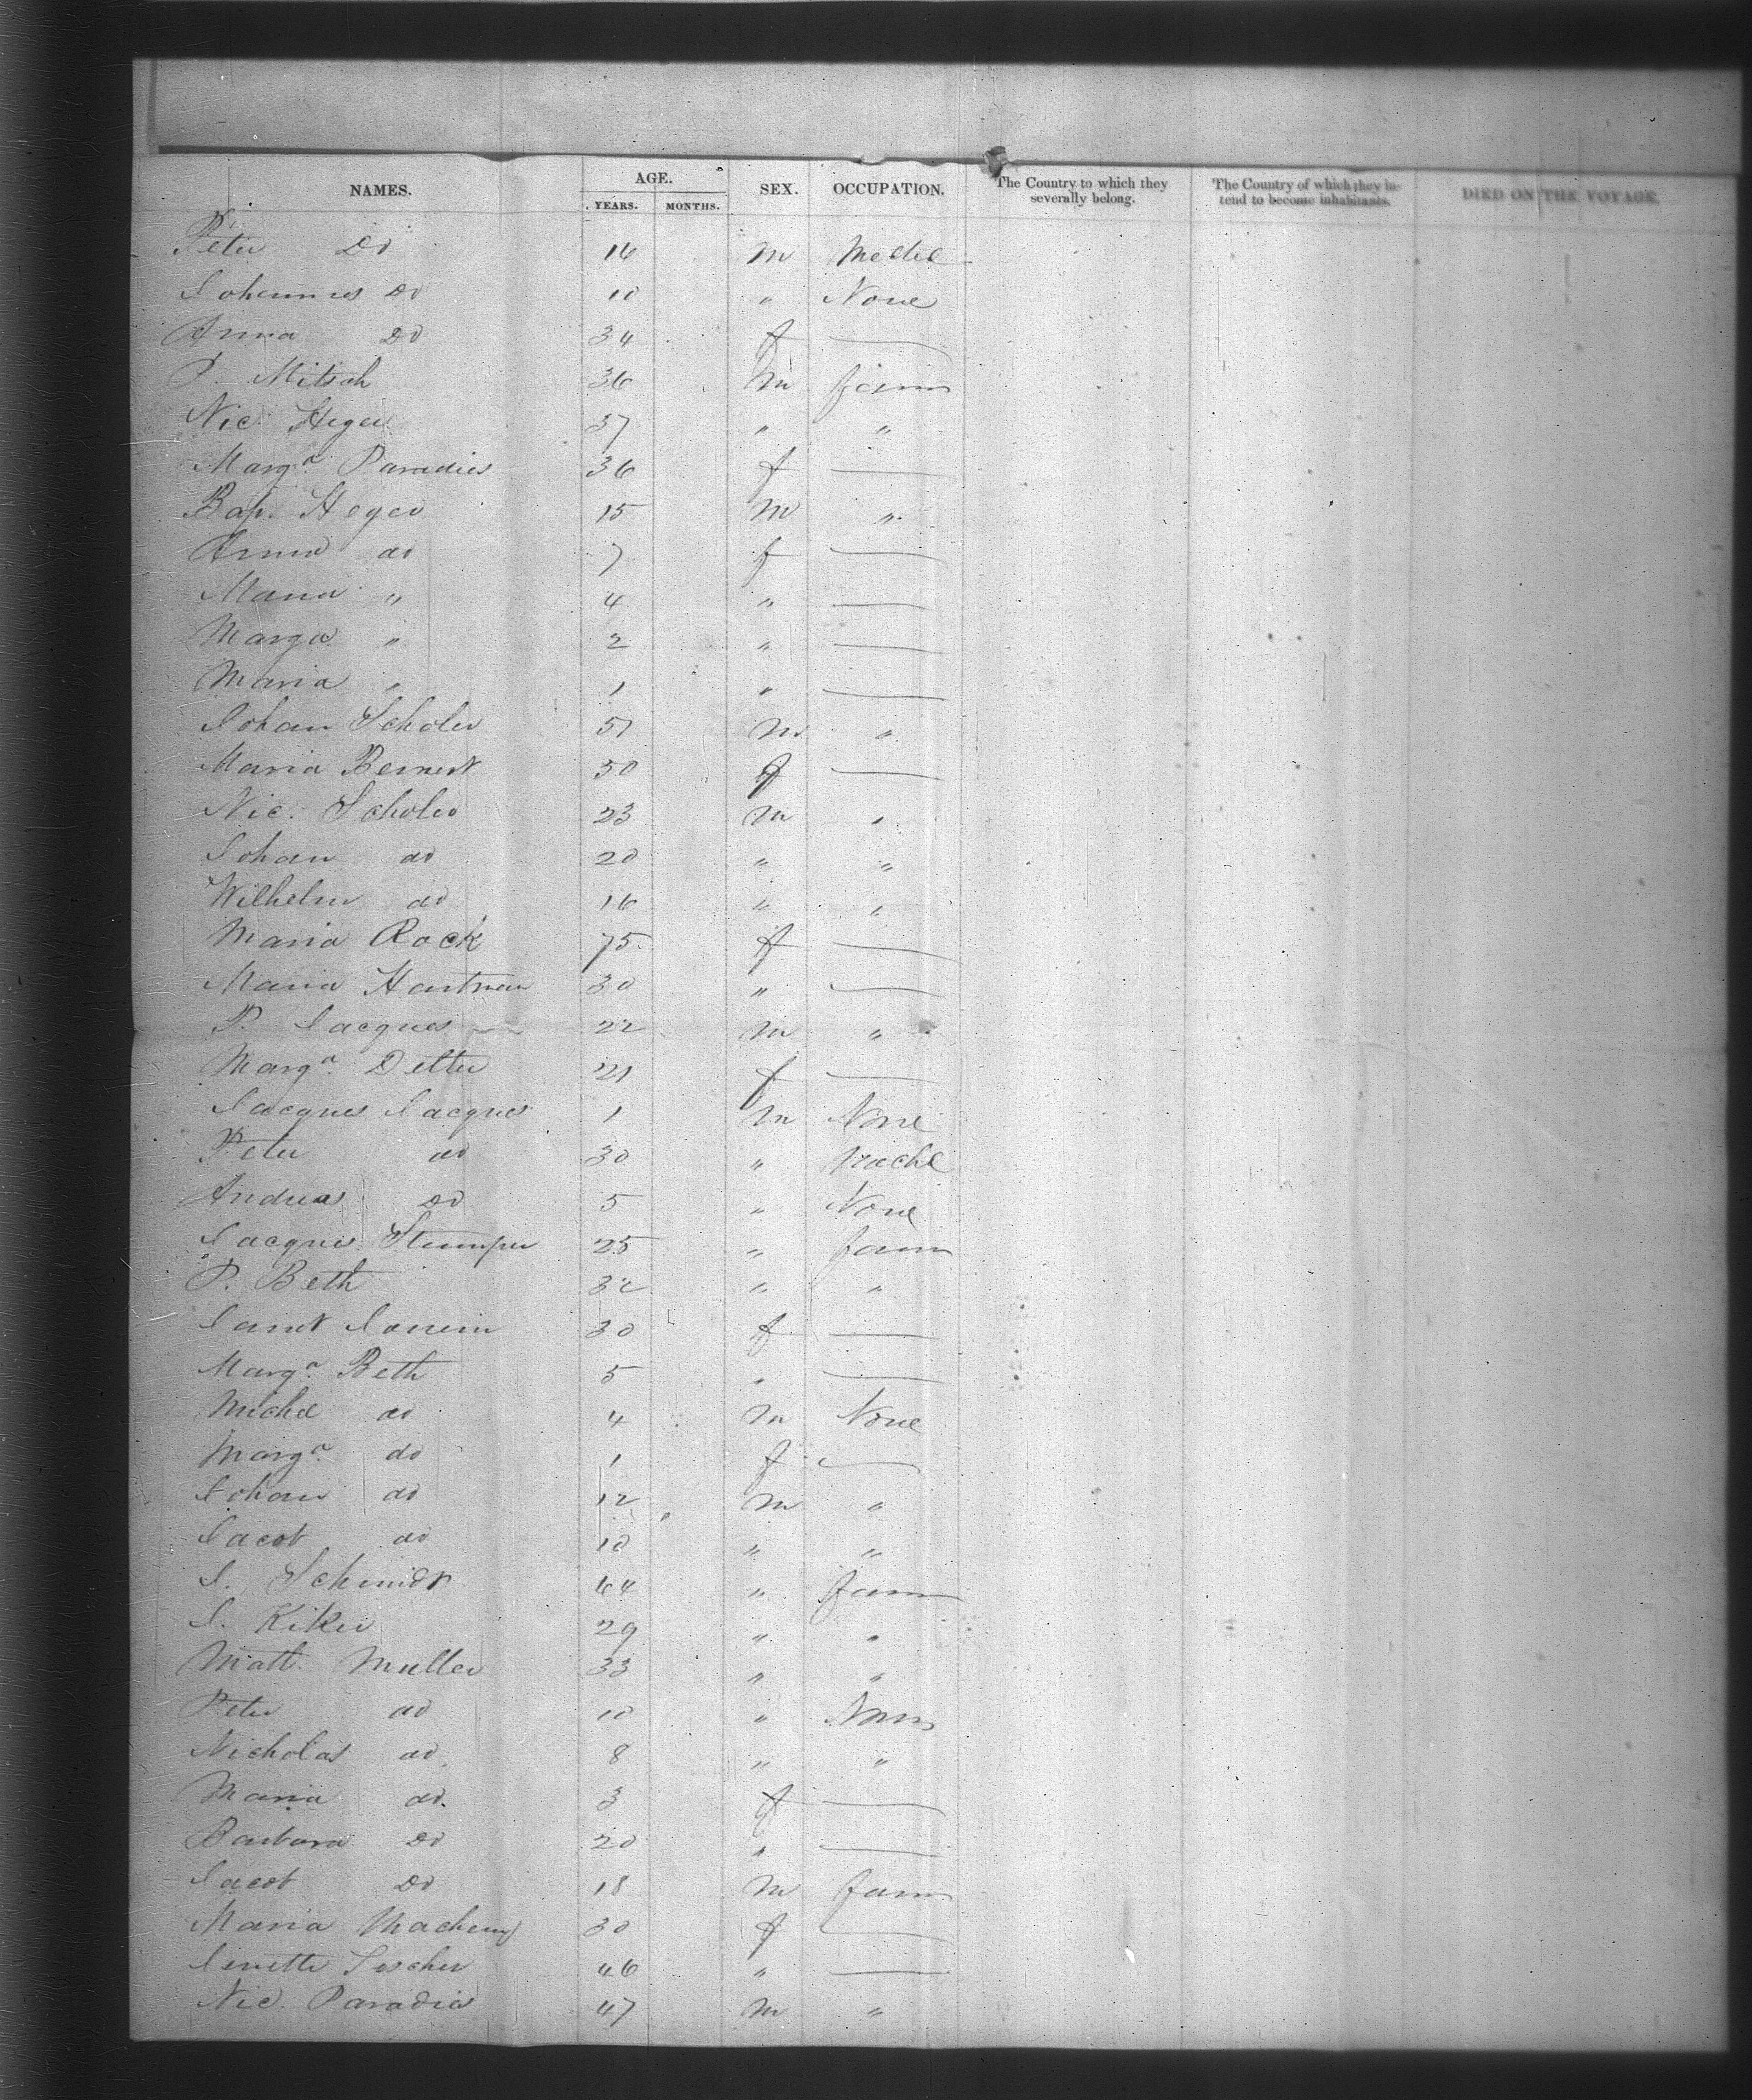 NAMES. AGE. YEARS. MONTHS. SEX. OCCUPATION. The Country to which they severally belong. The Country of which they intend to become inhabitants. DIED ON THE VOYAGE.
Peter Do 16 m
Johannes Do 10 " None
Anna Do 34 f
P. Mitsch 36 m farm
Nic. Heger 37 " "
Marga. Paradies 36 f
Bap. Heger 15 m "
Anna do 7 f
Maria " 4 "
Marga " 2 "
Maria " 1 "
Johan Scholer 57 m "
Maria 50 f
Nic. Scholer 23 m "
Johan do 20 " "
Wilhelm do 16 " "
Maria Rock 75 f
Maria Hartman 30 "
P. Jacques 22 m "
Marga. Detter 21 f
Jacques Jacques 1 m None
Peter do 30 "
Andreas Do 5 " None
Jacques Stumper 25 " farm
P. Beth 32 " "
30 f
Marga. Beth 5 "
Michel do 4 m None
Marga. do 1 f
Johan do 12 m "
Jacob do 10 " "
J. Schmidt 44 " farm
J. Kiker 29 " "
Matt. Muller 33 " "
Peter do 10 " None
Nicholas do 8 " "
Maria do. 3 f
Barbara Do 20 "
Jacob Do 18 m farm
Maria 30 f
46 "
Nic. Paradis 47 m "